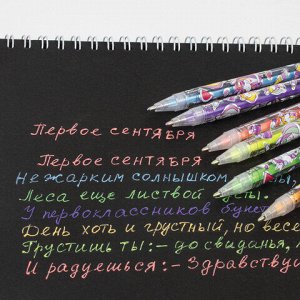 Первое сентября
Первое сентября
Нежарким солнышком
Леса еще листвой
У первоклассников
День хоть и грустный, но
Грустишь ты:- до свиданья,
И радуешься:- Здравствуй